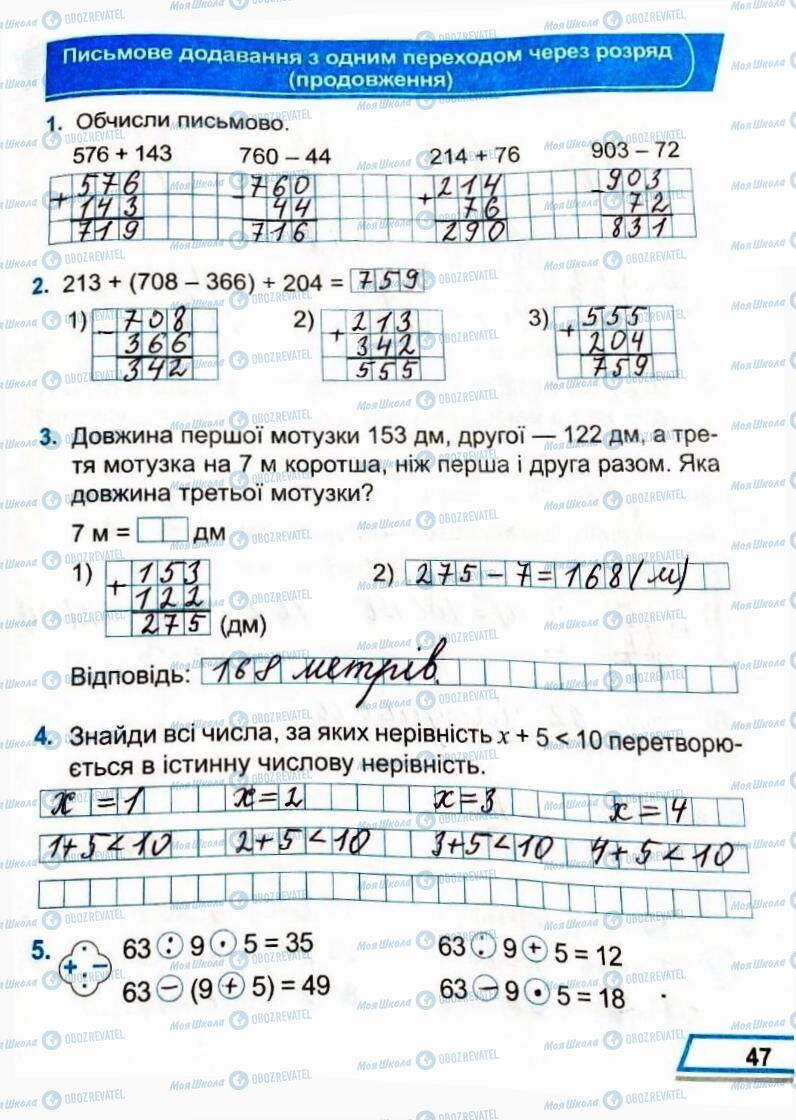 Письмове додавання з одним переходом через розряд
(продовження)
1. Обчисли письмово.
576 + 143 760 – 44 214 + 76 903 – 72
+ 576 - 760 + 214 - 903
143 44 76 72
719 716 290 831
2. 213 + (708 – 366) + 204 = 759
1) 708 2) 213 3) 555
– 366 + 342 + 204
342 555 759
3. Довжина першої мотузки 153 дм, другої — 122 дм, а тре-
тя мотузка на 7 м коротша, ніж перша і друга разом. Яка
довжина третьої мотузки?
7 м = дм
1) + 153 2) 275 – 7 = 168 (м)
122
275 (дм)
Відповідь: 168 метрів.
4. Знайди всі числа, за яких нерівність x + 5 < 10 перетворю-
ється в істинну числову нерівність.
x = 1 x = 2 x = 3 x = 4
1+5<10 2+5<10 3+5<10 4+5<10
5. + · – : 63 : 9 · 5 = 35 63 : 9 + 5 = 12
63 – (9 + 5) = 49 63 – 9 · 5 = 18
47
МояШкола OBOZREVATEL